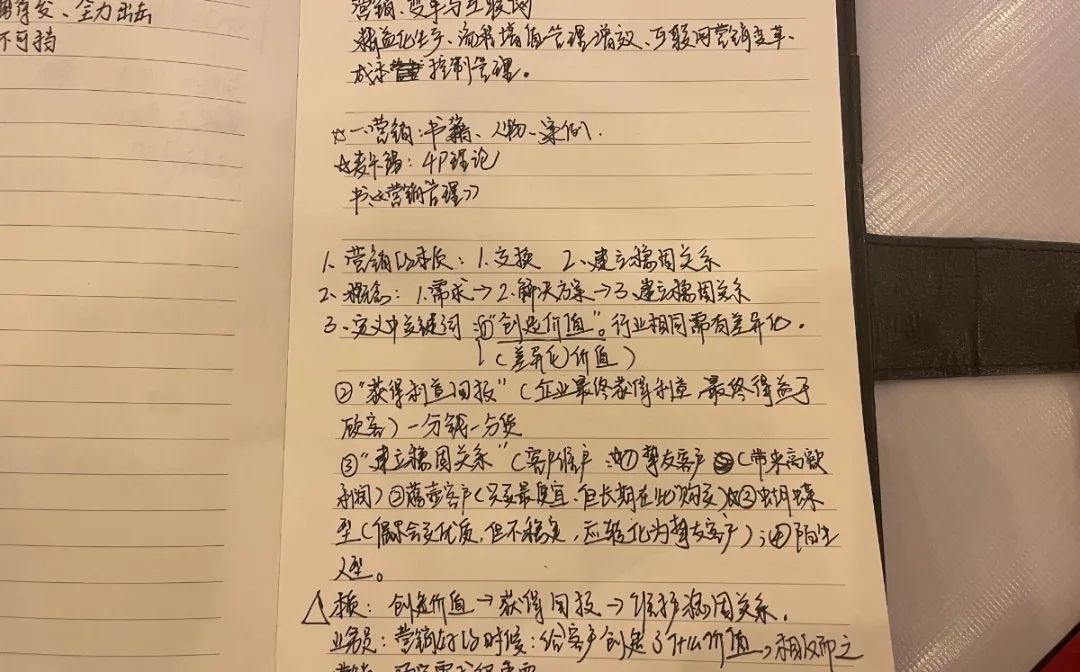 、全力出击
不可挡
营销、变革与互联网
精益化生产、流程增值管理增效、互联网营销变革、
成本控制管理。
☆一、营销:书籍、人物、案例.
☆麦卡锡:4P理论
书《营销管理》
1、营销的本质:1.交换 2、建立稳固关系
2、概念:1.需求→2.解决方案→3、建立稳固关系
3、定义中关键词:①"创造价值"。行业相同需有差异化.
(差异化价值)
②"获得利益回报"(企业最终获得利益,最终得益于
顾客)一分钱一分货
③"建立稳固关系"(客户维护:①挚友客户(带来高额
利润)②藤壶客户(只买最便宜,但长期在此购买)③蝴蝶
型(偶尔会变优质,但不稳定,应转化为挚友客户);④陌生
人型。
△本质:创造价值→获得回报→维护稳固关系.
业务员:营销的时候:给客户创造了什么价值,相反即之